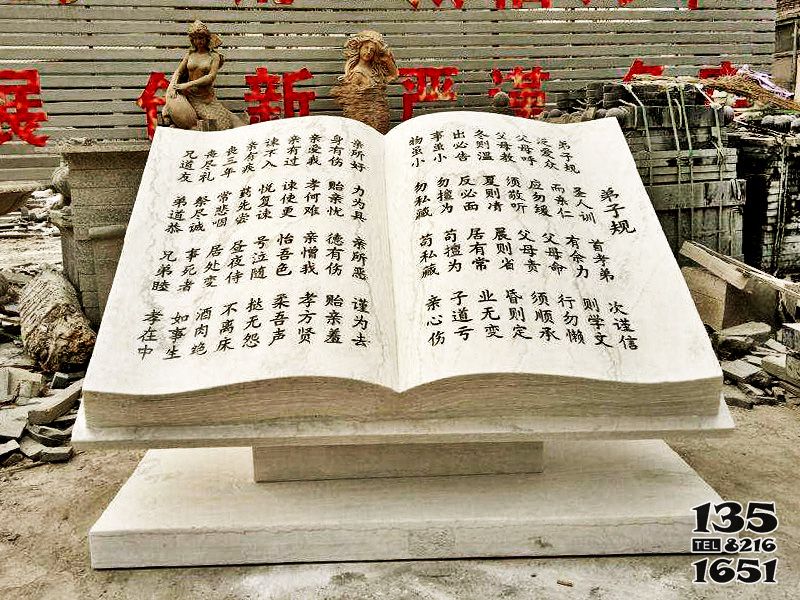 弟子规
弟子规 圣人训 首孝弟 次谨信
泛爱众 而亲仁 有余力 则学文
父母呼 应勿缓 父母命 行勿懒
父母教 须敬听 父母责 须顺承
冬则温 夏则凊 晨则省 昏则定
出必告 反必面 居有常 业无变
事虽小 勿擅为 苟擅为 子道亏
物虽小 勿私藏 苟私藏 亲心伤
亲所好 力为具 亲所恶 谨为去
身有伤 贻亲忧 德有伤 贻亲羞
亲爱我 孝何难 亲憎我 孝方贤
亲有过 谏使更 怡吾色 柔吾声
谏不入 悦复谏 号泣随 挞无怨
亲有疾 药先尝 昼夜侍 不离床
丧三年 常悲咽 居处变 酒肉绝
丧尽礼 祭尽诚 事死者 如事生
兄道友 弟道恭 兄弟睦 孝在中
展 创新 严谨
135
TEL &216
1651